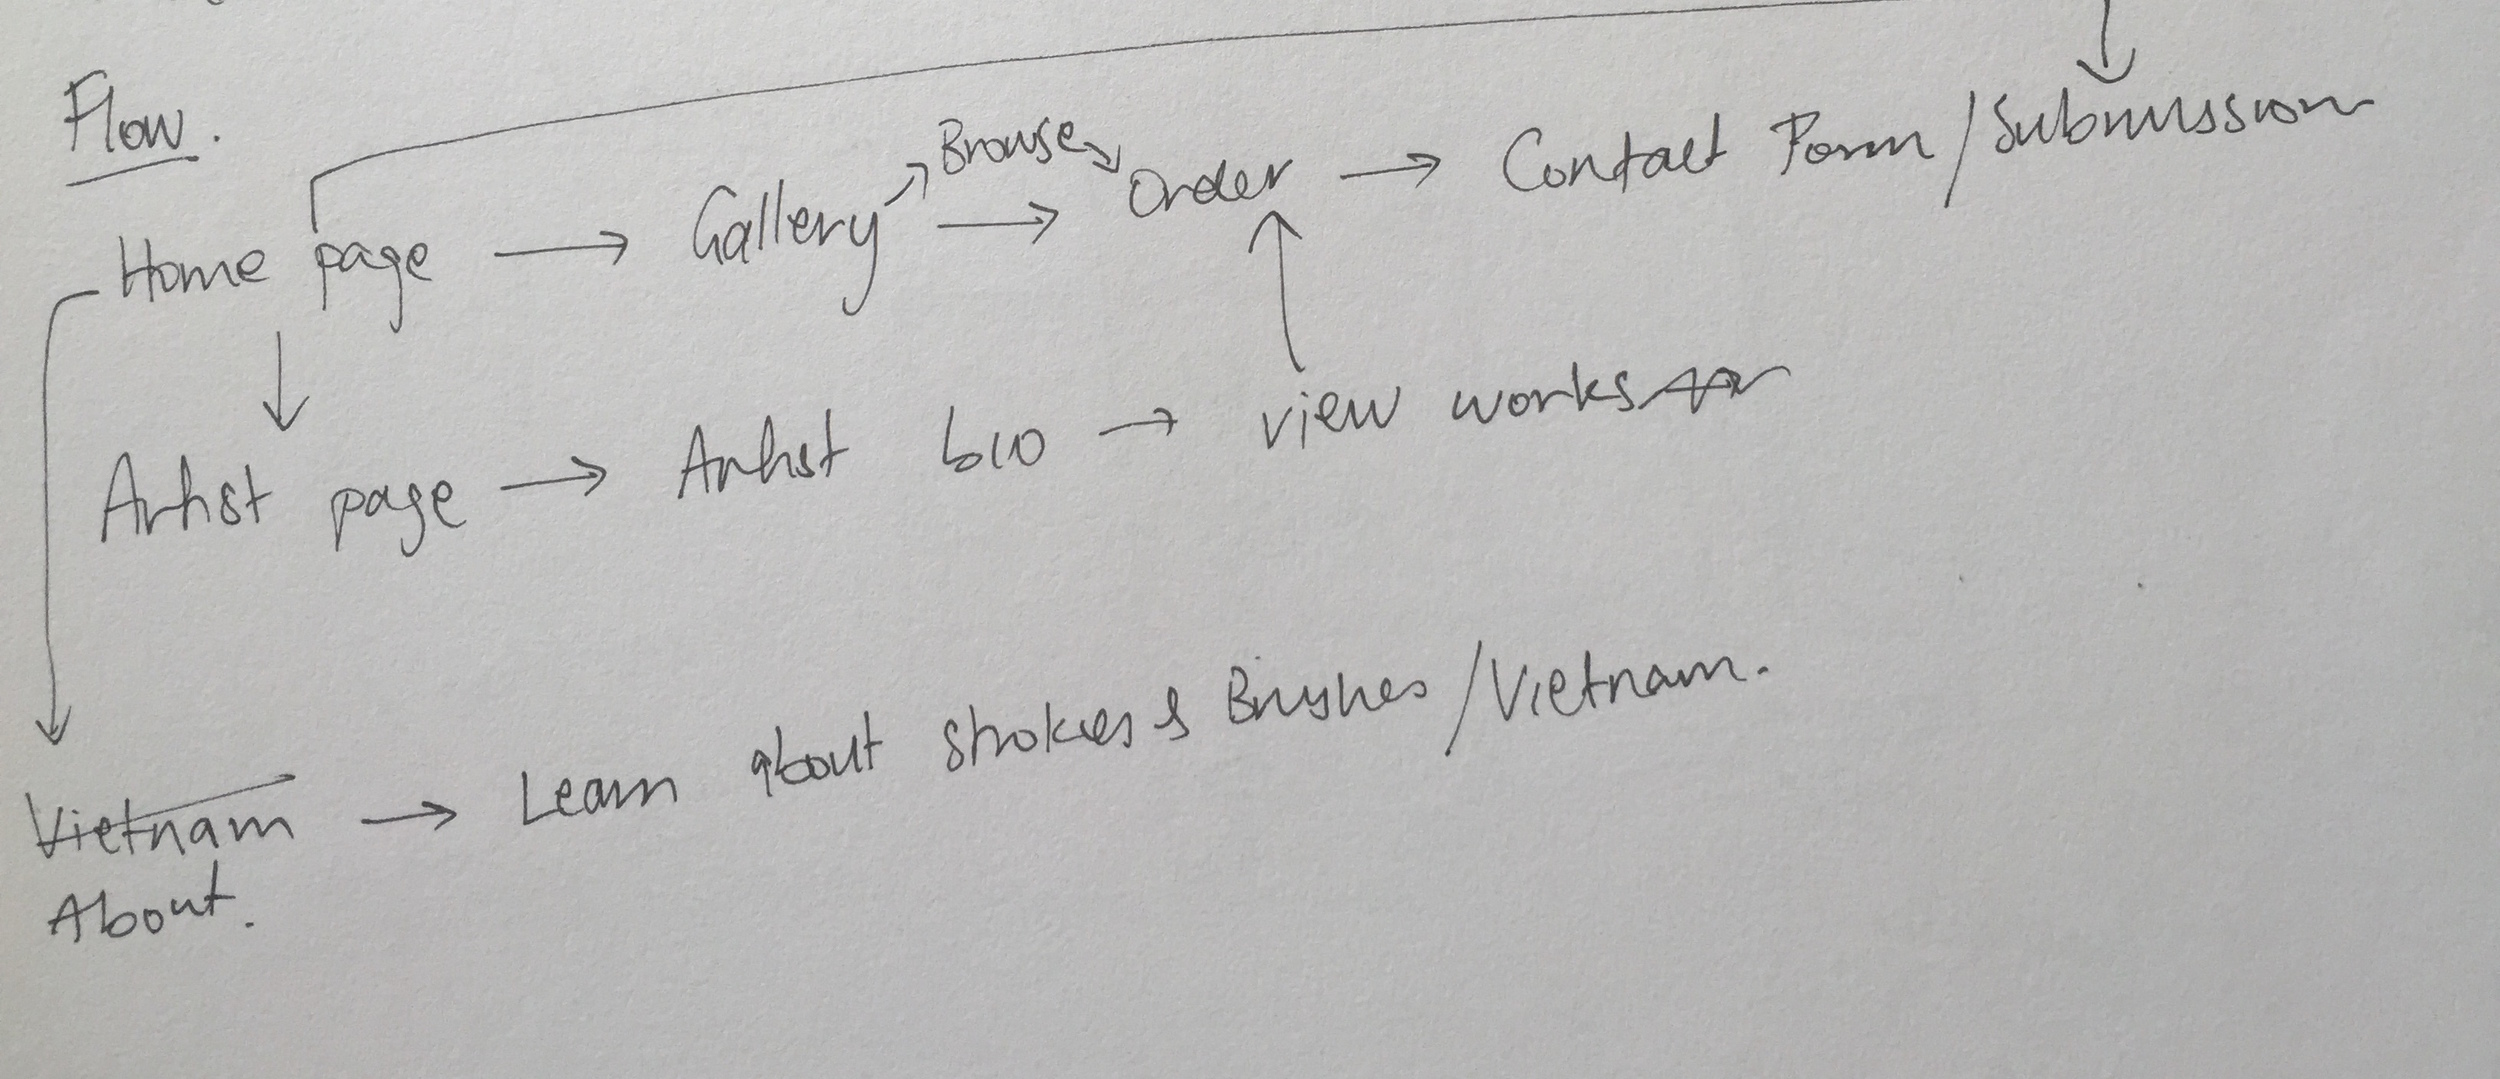 Flow.
Browse
Home page → Gallery → Order → Contact Form/Submission
Artist page → Artist bio → view works
Vietnam → Learn about strokes & Brushes/Vietnam.
About.